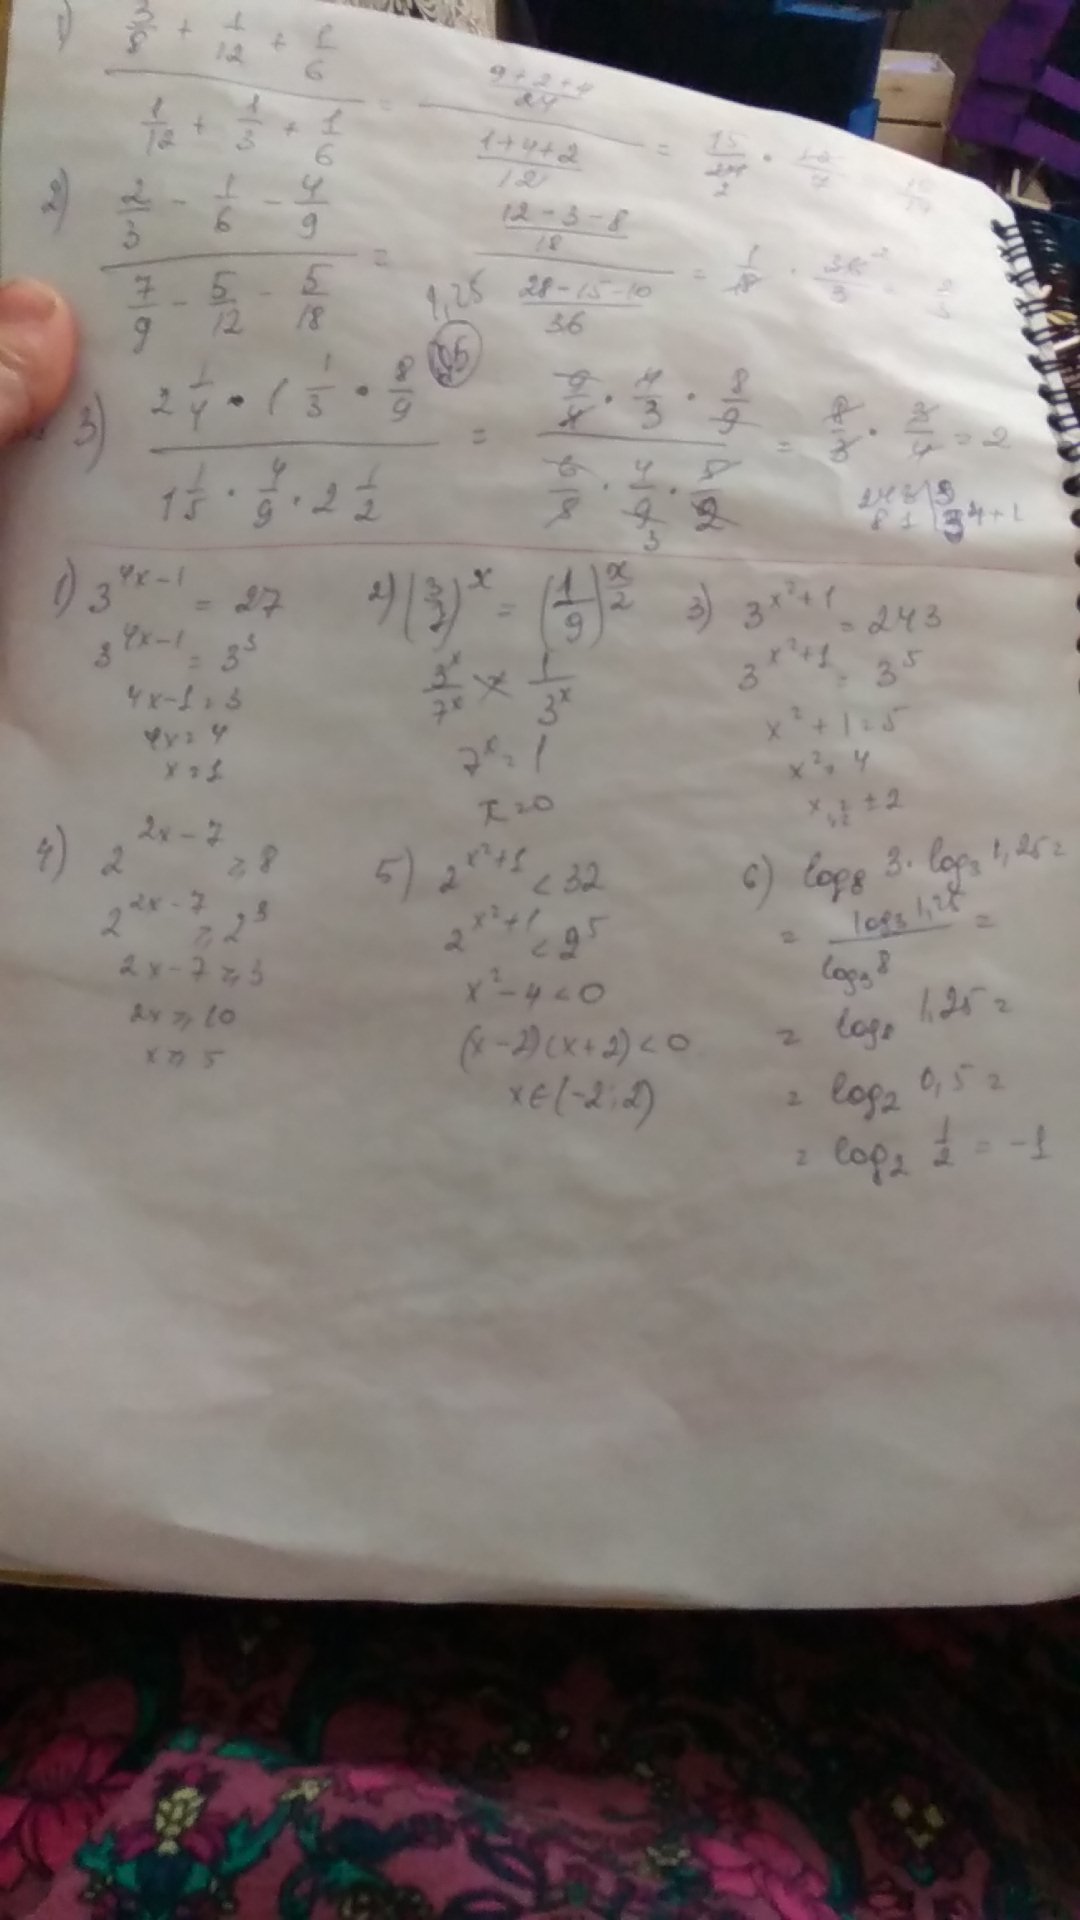 1) (3/8 + 1/12 + 1/6) / (1/12 + 1/3 + 1/6) = ((9+2+4)/24) / ((1+4+2)/12) = 15/24 2 · 12/7
2) (2/3 - 1/6 - 4/9) / (7/9 - 5/12 - 5/18) = ((12-3-8)/18) / ((28-15-10)/36) = 1/18 · 36 2/3 =
1,25
3) (2 1/4 · 1 1/3 · 8/9) / (1 1/5 · 4/9 · 2 1/2) = (9/4 · 4/3 · 8/9) / (6/5 · 4/9 3 · 5/2) = 8/3 · 3/4 = 2
243 | 3
81 | 3^4+1
1) 3^(4x-1) = 27
3^(4x-1) = 3^3
4x-1=3
4x=4
x=1
2) (3/7)^x = (1/9)^(x/2)
3^x/7^x × 1/3^x
7^x=1
x=0
3) 3^(x²+1) = 243
3^(x²+1) = 3^5
x²+1=5
x²=4
x = ±2
4) 2^(2x-7) ≥ 8
2^(2x-7) ≥ 2^3
2x-7≥3
2x≥10
x≥5
5) 2^(x²+1) < 32
2^(x²+1) < 2^5
x²-4<0
(x-2)(x+2)<0
x∈(-2;2)
6) log₈ 3 · log₃ 1,25 =
= log₃ 1,25 / log₃ 8 =
= log₈ 1,25 =
= log₂ 0,5 =
= log₂ 1/2 = -1